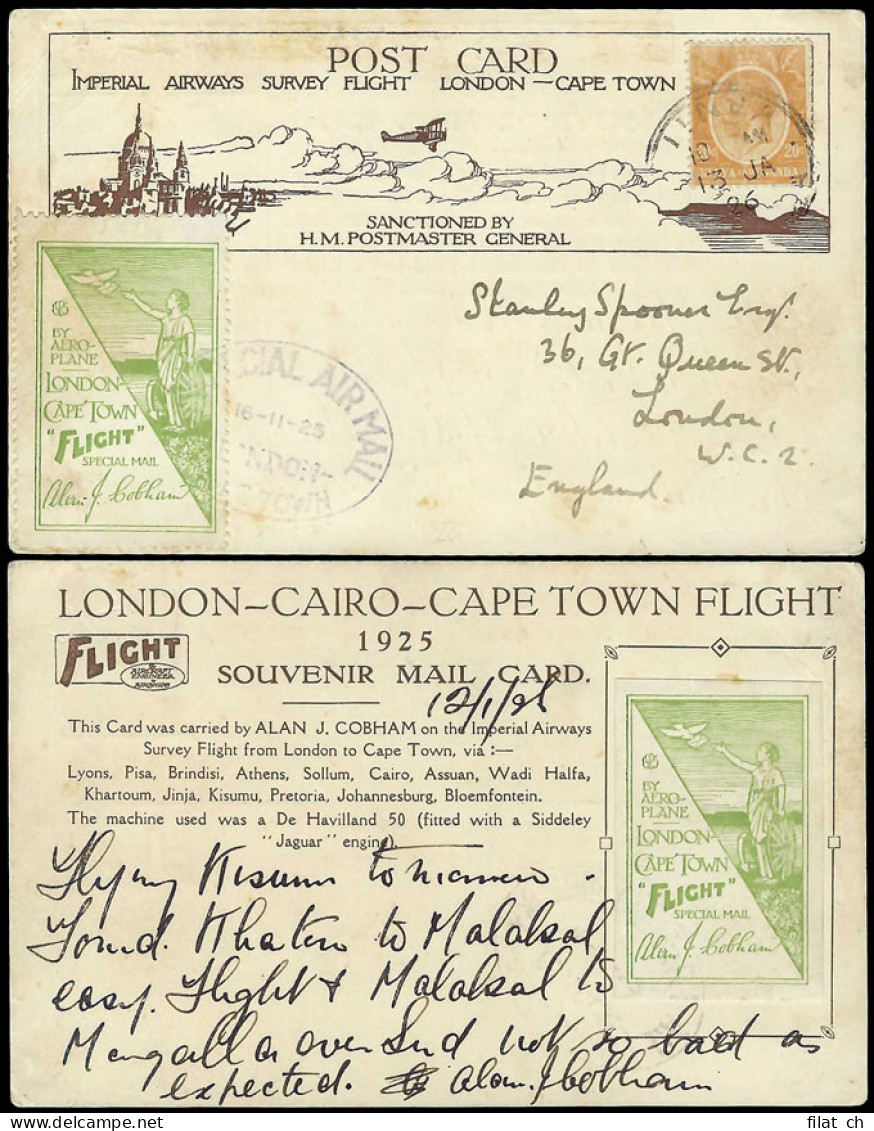 POST CARD
IMPERIAL AIRWAYS SURVEY FLIGHT LONDON—CAPE TOWN
SANCTIONED BY
H.M. POSTMASTER GENERAL
10 AM
13 JA
26
BY
AERO-
PLANE
LONDON-
CAPE TOWN
"FLIGHT"
SPECIAL MAIL
Alan J. Cobham
CIAL AIR MAIL
16-11-25
NDON-
TOWN
Stanley Spooner Esq.
36, Gt. Queen St.,
London,
W.C.2.
England
LONDON—CAIRO—CAPE TOWN FLIGHT
1925
SOUVENIR MAIL CARD.
FLIGHT
& AIRCRAFT ENGINEER & AIRSHIPS
12/1/26
This Card was carried by ALAN J. COBHAM on the Imperial Airways
Survey Flight from London to Cape Town, via :—
Lyons, Pisa, Brindisi, Athens, Sollum, Cairo, Assuan, Wadi Halfa,
Khartoum, Jinja, Kisumu, Pretoria, Johannesburg, Bloemfontein.
The machine used was a De Havilland 50 (fitted with a Siddeley
"Jaguar" engine).
BY
AERO-
PLANE
LONDON-
CAPE TOWN
"FLIGHT"
SPECIAL MAIL
Alan J. Cobham
Flying Kisumu tomorrow.
Found Khatum to Malakal
easy flight & Malakal to
Mongalla over Sud not so bad as
expected. Alan J Cobham
filat ch